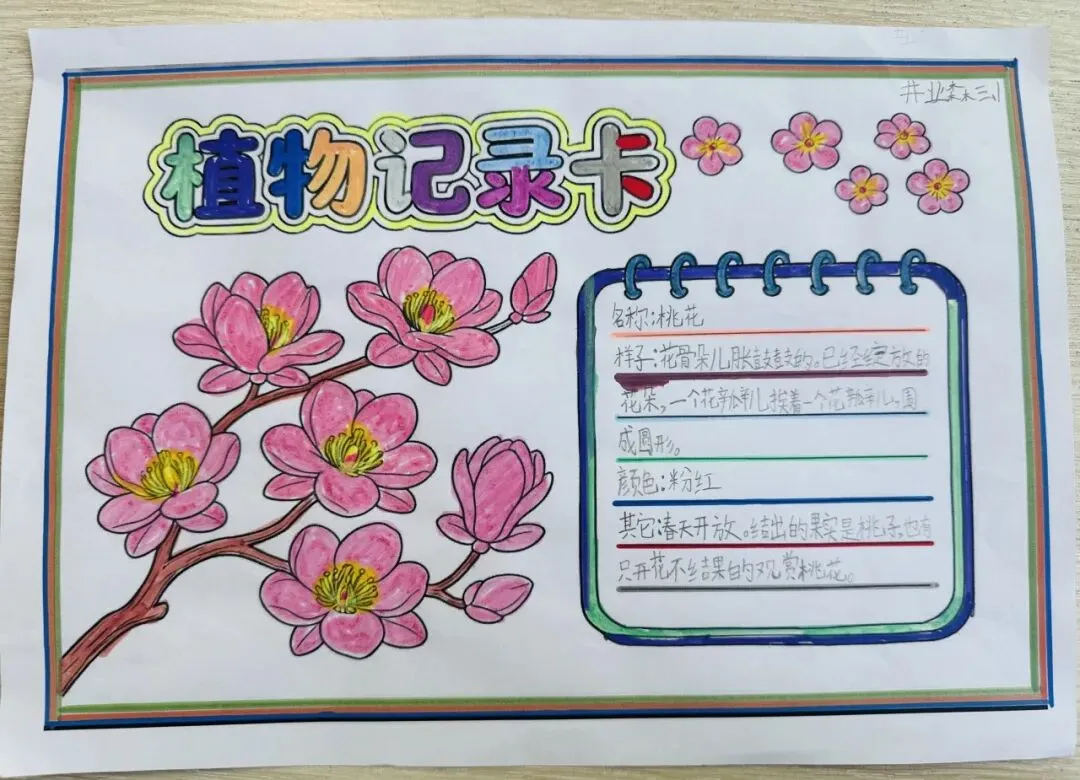 植物记录卡
名称:桃花
样子:花骨朵儿胀鼓鼓的。已经绽放的
花朵,一个花瓣儿挨着一个花瓣儿,围
成圆形。
颜色:粉红
其它:春天开放。结出的果实是桃子,也有
只开花不结果的观赏桃花。